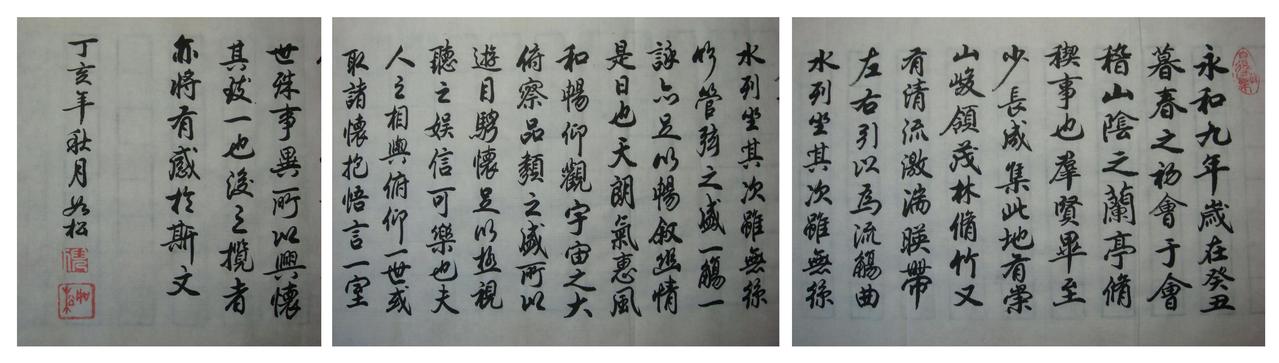 永和九年歲在癸丑
暮春之初會于會
稽山陰之蘭亭脩
稧事也羣賢畢至
少長咸集此地有崇
山峻領茂林脩竹又
有清流激湍暎帶
左右引以為流觴曲
水列坐其次雖無絲
水列坐其次雖無絲
竹管弦之盛一觴一
詠亦足以暢叙幽情
是日也天朗氣惠風
和暢仰觀宇宙之大
俯察品類之盛所以
遊目騁懷足以極視
聽之娛信可樂也夫
人之相與俯仰一世或
取諸懷抱悟言一室
世殊事異所以興懷
其致一也後之攬者
亦將有感於斯文
丁亥年秋月如松